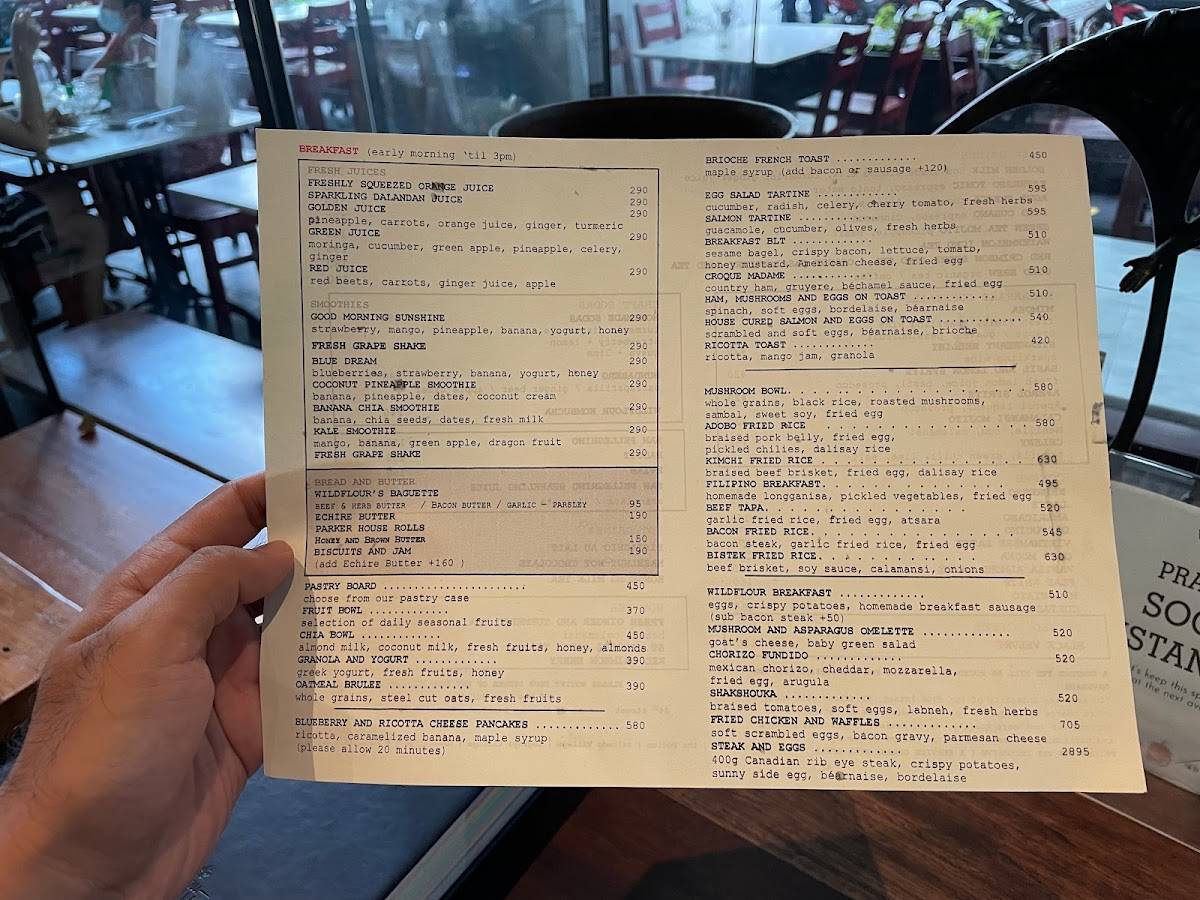 BREAKFAST (early morning 'til 3pm)
FRESH JUICES
FRESHLY SQUEEZED ORANGE JUICE 290
SPARKLING DALANDAN JUICE 290
GOLDEN JUICE 290
pineapple, carrots, orange juice, ginger, turmeric
GREEN JUICE 290
moringa, cucumber, green apple, pineapple, celery,
ginger
RED JUICE 290
red beets, carrots, ginger juice, apple
SMOOTHIES
GOOD MORNING SUNSHINE 290
strawberry, mango, pineapple, banana, yogurt, honey
FRESH GRAPE SHAKE 290
BLUE DREAM 290
blueberries, strawberry, banana, yogurt, honey
COCONUT PINEAPPLE SMOOTHIE 290
banana, pineapple, dates, coconut cream
BANANA CHIA SMOOTHIE 290
banana, chia seeds, dates, fresh milk
KALE SMOOTHIE 290
mango, banana, green apple, dragon fruit
FRESH GRAPE SHAKE 290
BREAD AND BUTTER
WILDFLOUR'S BAGUETTE
BEEF & HERB BUTTER / BACON BUTTER / GARLIC - PARSLEY 95
ECHIRE BUTTER 190
PARKER HOUSE ROLLS
HONEY AND BROWN BUTTER 150
BISCUITS AND JAM 190
(add Echire Butter +160 )
PASTRY BOARD ...................... 450
choose from our pastry case
FRUIT BOWL ............ 370
selection of daily seasonal fruits
CHIA BOWL ............. 450
almond milk, coconut milk, fresh fruits, honey, almonds
GRANOLA AND YOGURT ............. 390
greek yogurt, fresh fruits, honey
OATMEAL BRULEE ............. 390
whole grains, steel cut oats, fresh fruits
BLUEBERRY AND RICOTTA CHEESE PANCAKES ............. 580
ricotta, caramelized banana, maple syrup
(please allow 20 minutes)
BRIOCHE FRENCH TOAST ............. 450
maple syrup (add bacon or sausage +120)
EGG SALAD TARTINE ............. 595
cucumber, radish, celery, cherry tomato, fresh herbs
SALMON TARTINE ............. 595
guacamole, cucumber, olives, fresh herbs
BREAKFAST BLT ............. 510
sesame bagel, crispy bacon, lettuce, tomato,
honey mustard, American cheese, fried egg
CROQUE MADAME ............. 510
country ham, gruyere, béchamel sauce, fried egg
HAM, MUSHROOMS AND EGGS ON TOAST ............. 510
spinach, soft eggs, bordelaise, béarnaise
HOUSE CURED SALMON AND EGGS ON TOAST ............. 540
scrambled and soft eggs, béarnaise, brioche
RICOTTA TOAST ............. 420
ricotta, mango jam, granola
MUSHROOM BOWL. . . . . . . . . . . . . 580
whole grains, black rice, roasted mushrooms,
sambal, sweet soy, fried egg
ADOBO FRIED RICE . . . . . . . . . . . . . 580
braised pork belly, fried egg,
pickled chilies, dalisay rice
KIMCHI FRIED RICE . . . . . . . . . . . . . 630
braised beef brisket, fried egg, dalisay rice
FILIPINO BREAKFAST. . . . . . . . . . . . . 495
homemade longganisa, pickled vegetables, fried egg
BEEF TAPA. . . . . . . . . . . . . 520
garlic fried rice, fried egg, atsara
BACON FRIED RICE. . . . . . . . . . . . . 545
bacon steak, garlic fried rice, fried egg
BISTEK FRIED RICE. . . . . . . . . . . . . 630
beef brisket, soy sauce, calamansi, onions
WILDFLOUR BREAKFAST ............. 510
eggs, crispy potatoes, homemade breakfast sausage
(sub bacon steak +50)
MUSHROOM AND ASPARAGUS OMELETTE ............. 520
goat's cheese, baby green salad
CHORIZO FUNDIDO ............. 520
mexican chorizo, cheddar, mozzarella,
fried egg, arugula
SHAKSHOUKA ............. 520
braised tomatoes, soft eggs, labneh, fresh herbs
FRIED CHICKEN AND WAFFLES ............. 705
soft scrambled eggs, bacon gravy, parmesan cheese
STEAK AND EGGS ............. 2895
400g Canadian rib eye steak, crispy potatoes,
sunny side egg, béarnaise, bordelaise